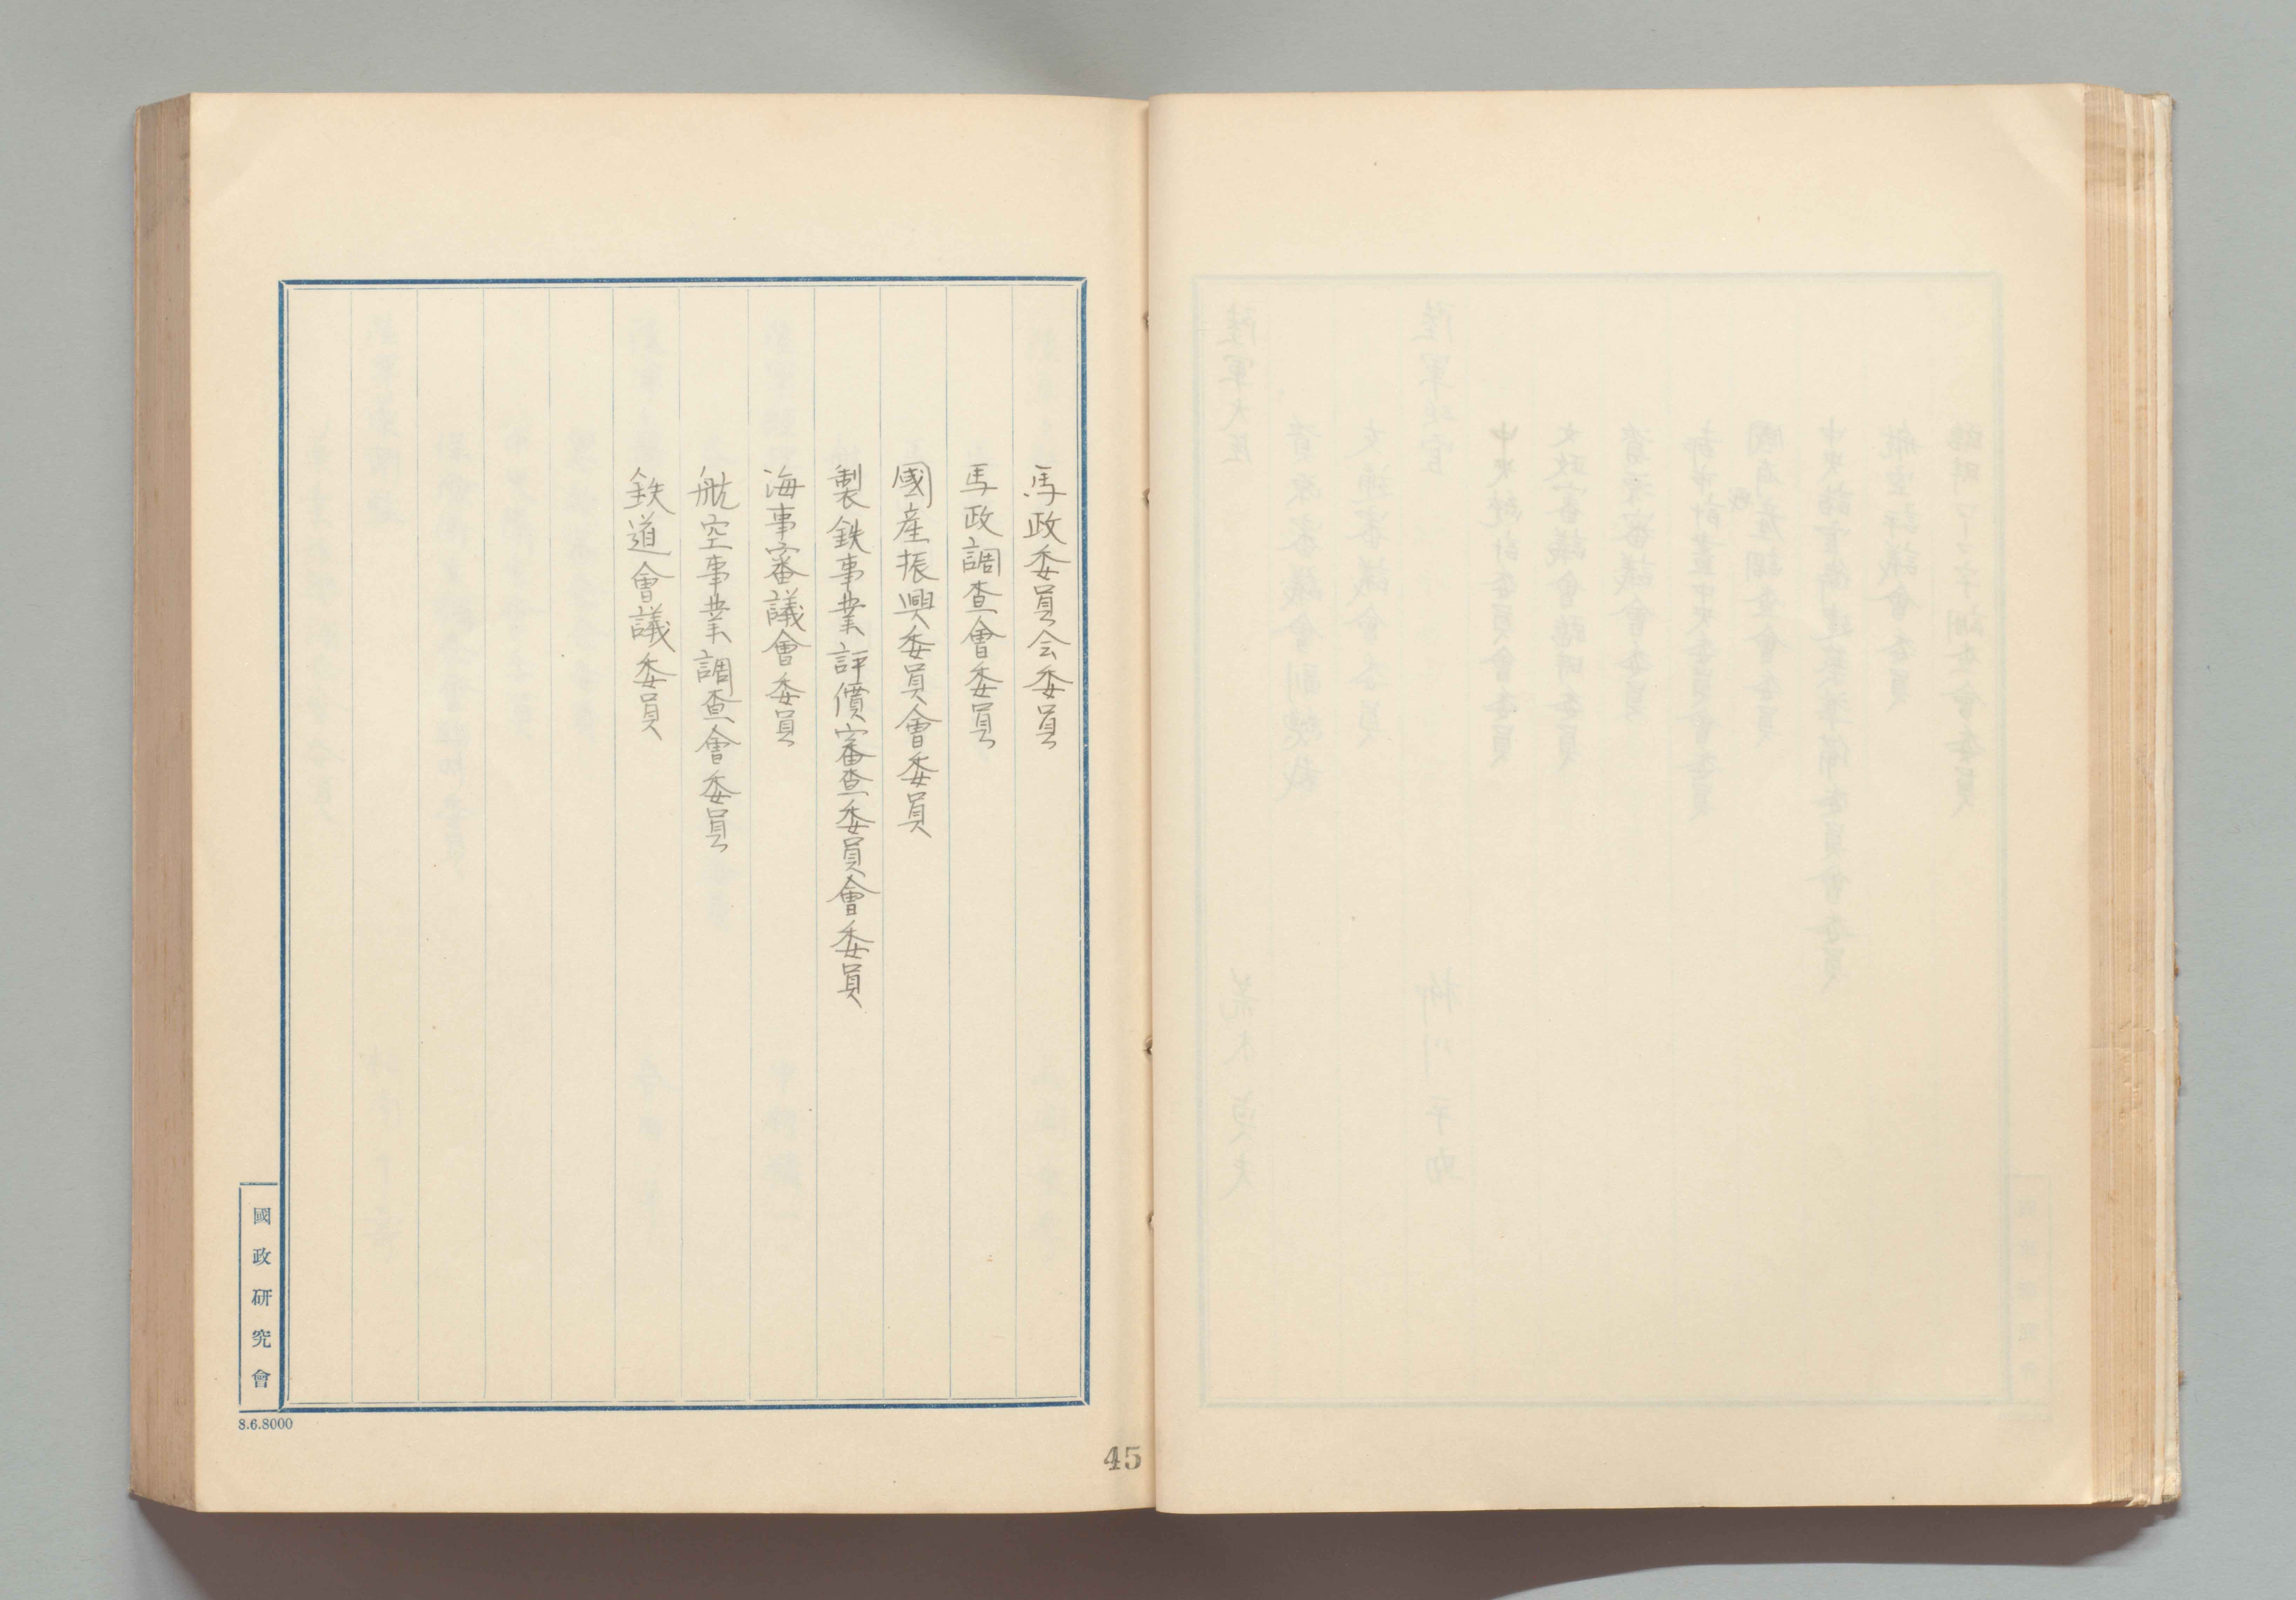 馬政委員会委員
馬政調査會委員
國産振興委員會委員
製鉄事業評價審査委員會委員
海事審議會委員
航空事業調査會委員
鉄道會議委員
國政研究會
8.6.8000
45